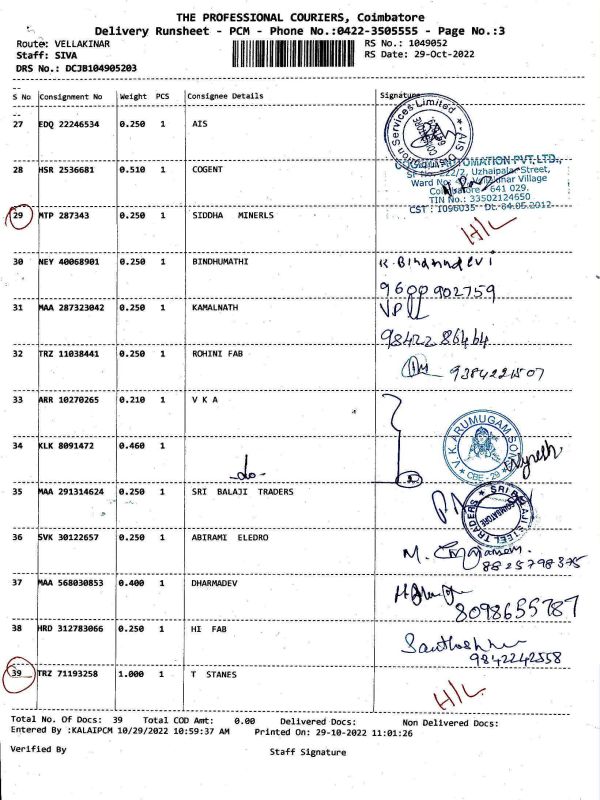 THE PROFESSIONAL COURIERS, Coimbatore
Delivery Runsheet - PCM - Phone No.:0422-3505555 - Page No.:3
Route: VELLAKINAR RS No.: 1049052
Staff: SIVA RS Date: 29-Oct-2022
DRS No.: DCJB104905203
S No Consignment No Weight PCS Consignee Details Signature
27 EDQ 22246534 0.250 1 AIS
28 HSR 2536681 0.510 1 COGENT
AUTOMATION PVT. LTD.,
SF No. 222/2, Uzhaipalar Street,
Village
Coimbatore 641 029.
TIN No.: 33502124650
CST : 1096035 Dt. 04.05.2012
29 MTP 287343 0.250 1 SIDDHA MINERLS H/L
30 NEY 40068901 0.250 1 BINDHUMATHI
9600 902759
31 MAA 287323042 0.250 1 KAMALNATH
98422 86464
32 TRZ 11038441 0.250 1 ROHINI FAB 9384221507
33 ARR 10270265 0.210 1 V K A
34 KLK 8091472 0.460 1
-do-
V. K. ARUMUGAM SON
CBE - 29
35 MAA 291314624 0.250 1 SRI BALAJI TRADERS
SRI BALAJI STEEL TRADERS
COIMBATORE
36 SVK 30122657 0.250 1 ABIRAMI ELEDRO
8825798375
37 MAA 568030853 0.400 1 DHARMADEV
8098655787
38 HRD 312783066 0.250 1 HI FAB
9842242558
39 TRZ 71193258 1.000 1 T STANES H/L
Total No. Of Docs: 39 Total COD Amt: 0.00 Delivered Docs: Non Delivered Docs:
Entered By :KALAIPCM 10/29/2022 10:59:37 AM Printed On: 29-10-2022 11:01:26
Verified By Staff Signature